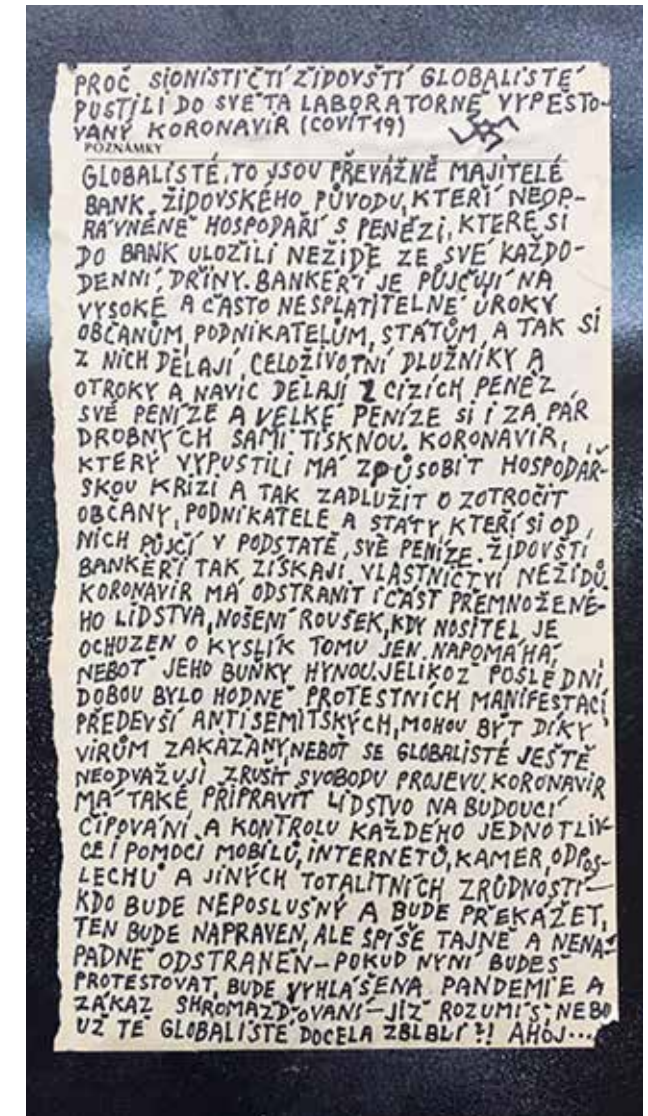 PROČ SIONISTIČTÍ ŽIDOVŠTÍ GLOBALISTÉ
PUSTILI DO SVĚTA LABORATORNĚ VYPĚSTO-
VANÝ KORONAVIR (COVIT19)
POZNÁMKY
GLOBALISTÉ, TO JSOU PŘEVÁŽNĚ MAJITELÉ
BANK, ŽIDOVSKÉHO PŮVODU, KTEŘÍ NEOP-
RÁVNĚNĚ HOSPODAŘÍ S PENĚZI, KTERÉ SI
DO BANK ULOŽILI NEŽIDÉ ZE SVÉ KAŽDO-
DENNÍ, DŘINY. BANKÉŘI JE PŮJČUJÍ NA
VYSOKÉ A ČASTO NESPLATITELNÉ ÚROKY
OBČANŮM, PODNIKATELŮM, STÁTŮM, A TAK SI
Z NICH DĚLAJÍ, CELOŽIVOTNÍ DLUŽNÍKY A
OTROKY A NAVÍC DĚLAJÍ Z CIZÍCH PENĚZ
SVÉ PENÍZE A VELKÉ PENÍZE SI I ZA PÁR
DROBNÝCH SAMI TISKNOU. KORONAVIR,
KTERÝ VYPUSTILI MÁ ZPŮSOBIT HOSPODÁŘ-
SKOU KRIZI A TAK ZADLUŽIT O ZOTROČIT
OBČANY, PODNIKATELE A STÁTY, KTEŘÍ SI OD
NICH PŮJČÍ V PODSTATĚ, SVÉ PENÍZE. ŽIDOVŠTÍ
BANKÉŘI TAK ZÍSKAJÍ VLASTNICTVÍ NEŽIDŮ.
KORONAVIR MÁ ODSTRANIT I ČÁST PŘEMNOŽENÉ-
HO LIDSTVA, NOŠENÍ ROUŠEK, KDY NOSITEL JE
OCHUZEN O KYSLÍK TOMU JEN NAPOMÁHÁ,
NEBOŤ JEHO BUŇKY HYNOU. JELIKOŽ POSLEDNÍ
DOBOU BYLO HODNĚ PROTESTNÍCH MANIFESTACÍ
PŘEDEVŠÍ ANTISEMITSKÝCH, MOHOU BÝT DÍKY
VIRŮM ZAKÁZÁNY, NEBOŤ SE GLOBALISTÉ JEŠTĚ
NEODVAŽUJÍ ZRUŠIT SVOBODU PROJEVU. KORONAVIR
MÁ TAKÉ PŘIPRAVIT LIDSTVO NA BUDOUCÍ
ČIPOVÁNÍ A KONTROLU KAŽDÉHO JEDNOTLIV-
CE I POMOCÍ MOBILŮ, INTERNETŮ, KAMER, ODPOS-
LECHŮ A JINÝCH TOTALITNÍCH ZRŮDNOSTÍ—
KDO BUDE NEPOSLUŠNÝ A BUDE PŘEKÁŽET,
TEN BUDE NAPRAVEN, ALE SPÍŠE TAJNĚ A NENÁ-
PADNĚ ODSTRANĚN — POKUD NYNÍ BUDEŠ
PROTESTOVAT, BUDE VYHLÁŠENA PANDEMIE A
ZÁKAZ SHROMAŽĎOVÁNÍ — JIŽ ROZUMÍŠ NEBO
UŽ TĚ GLOBALISTÉ DOCELA ZBLBLI ?! AHOJ...